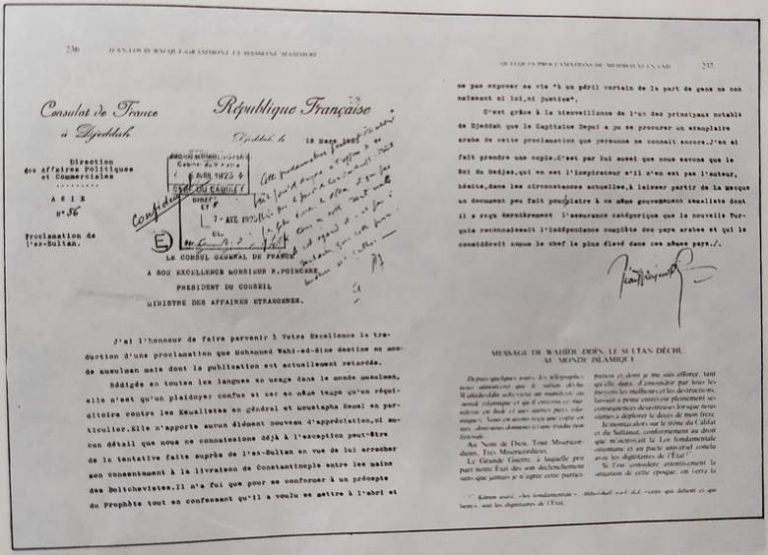 236
JEAN-LOUIS BACQUÉ-GRAMMONT ET HASSEINE MAMMERI
Consulat de France
à Djeddah
République Française
Djeddah, le 19 Mars 1923
Direction
des Affaires Politiques
et Commerciales
ASIE
N° 56
Proclamation de
l'ex-Sultan.
Confidentiel
AVRIL 1923
DIRECT
7 - AVR 1923
E
LE CONSUL GENERAL DE FRANCE
A SON EXCELLENCE MONSIEUR R.POINCARE
PRESIDENT DU CONSEIL
MINISTRE DES AFFAIRES ETRANGERES.
J'ai l'honneur de faire parvenir à Votre Excellence la tra-
duction d'une proclamation que Mohammed Wahi-ed-dine destine au mon-
de musulman mais dont la publication est actuellement retardée.
Rédigée en toutes les langues en usage dans le monde musulman,
elle n'est qu'un plaidoyer confus et sec en même temps qu'un réqui-
ditoire contre les Kemalistes en général et Moustapha Kemal en par-
ticulier.Elle n'apporte aucun élément nouveau d'appréciation,ni au-
cun détail que nous ne connaissions déjà à l'exception peut-être
de la tentative faite auprès de l'ex-Sultan en vue de lui arracher
son consentement à la livraison de Constantinople entre les mains
des Boltchevistes.Il n'a fui que pour se conformer à un précepte
du Prophète tout en confessant qu'il a voulu se mettre à l'abri et
QUELQUES PROCLAMATIONS DE
237
ne pas exposer sa vie "à un péril certain de la part de gens ne con
naissant ni loi,ni justice".
C'est grâce à la bienveillance de l'un des principaux notable
de Djeddah que le Capitaine Depui a pu se procurer un exemplaire
arabe de cette proclamation que personne ne connait encore.J'en ai
fait prendre une copie.C'est par lui aussi que nous savons que le
Roi du Hedjaz,qui en est l'inspirateur s'il n'en est pas l'auteur,
hésite,dans les circonstances actuelles,à laisser partir de La Mecque
un document peu fait pour plaire à ce même gouvernement kemaliste dont
il a reçu dernièrement l'assurance catégorique que la nouvelle Tur-
quie reconnaissait l'indépendance complète des pays arabes et qui le
considérait comme le chef le plus élevé dans ces mêmes pays./.
MESSAGE DE WAHIDU-DDÎN, LE SULTAN DÉCHU,
AU MONDE ISLAMIQUE
Depuis quelques jours, les télégraphes
nous annoncent que le sultan déchu
Wahideddin achève un manifeste au
monde islamique et qu'il enverra ce ma-
nifeste en Inde et aux autres pays isla-
miques. Nous en avons reçu une copie en
dont nous donnons ici une traduction
littérale.
Au Nom de Dieu, Tout Miséricor-
dieux, Très Miséricordieux.
La Grande Guerre, à laquelle prit
part notre État dès son déclenchement
sans que jamais je n'agrée cette partici-
pation et dont je me suis efforcé, tant
qu'elle dura, d'amoindrir par tous les
moyens les malheurs et les destructions,
laissait à peine entrevoir pleinement ses
conséquences désastreuses lorsque nous
eûmes à déplorer le décès de mon frère.
Je montai alors sur le trône du Califat
et du Sultanat, conformément au droit
que m'octroyait la Loi fondamentale
ottomane et au pacte universel conclu
avec les dignitaires de l'État
Si l'on considère attentivement la
situation de cette époque, on verra la